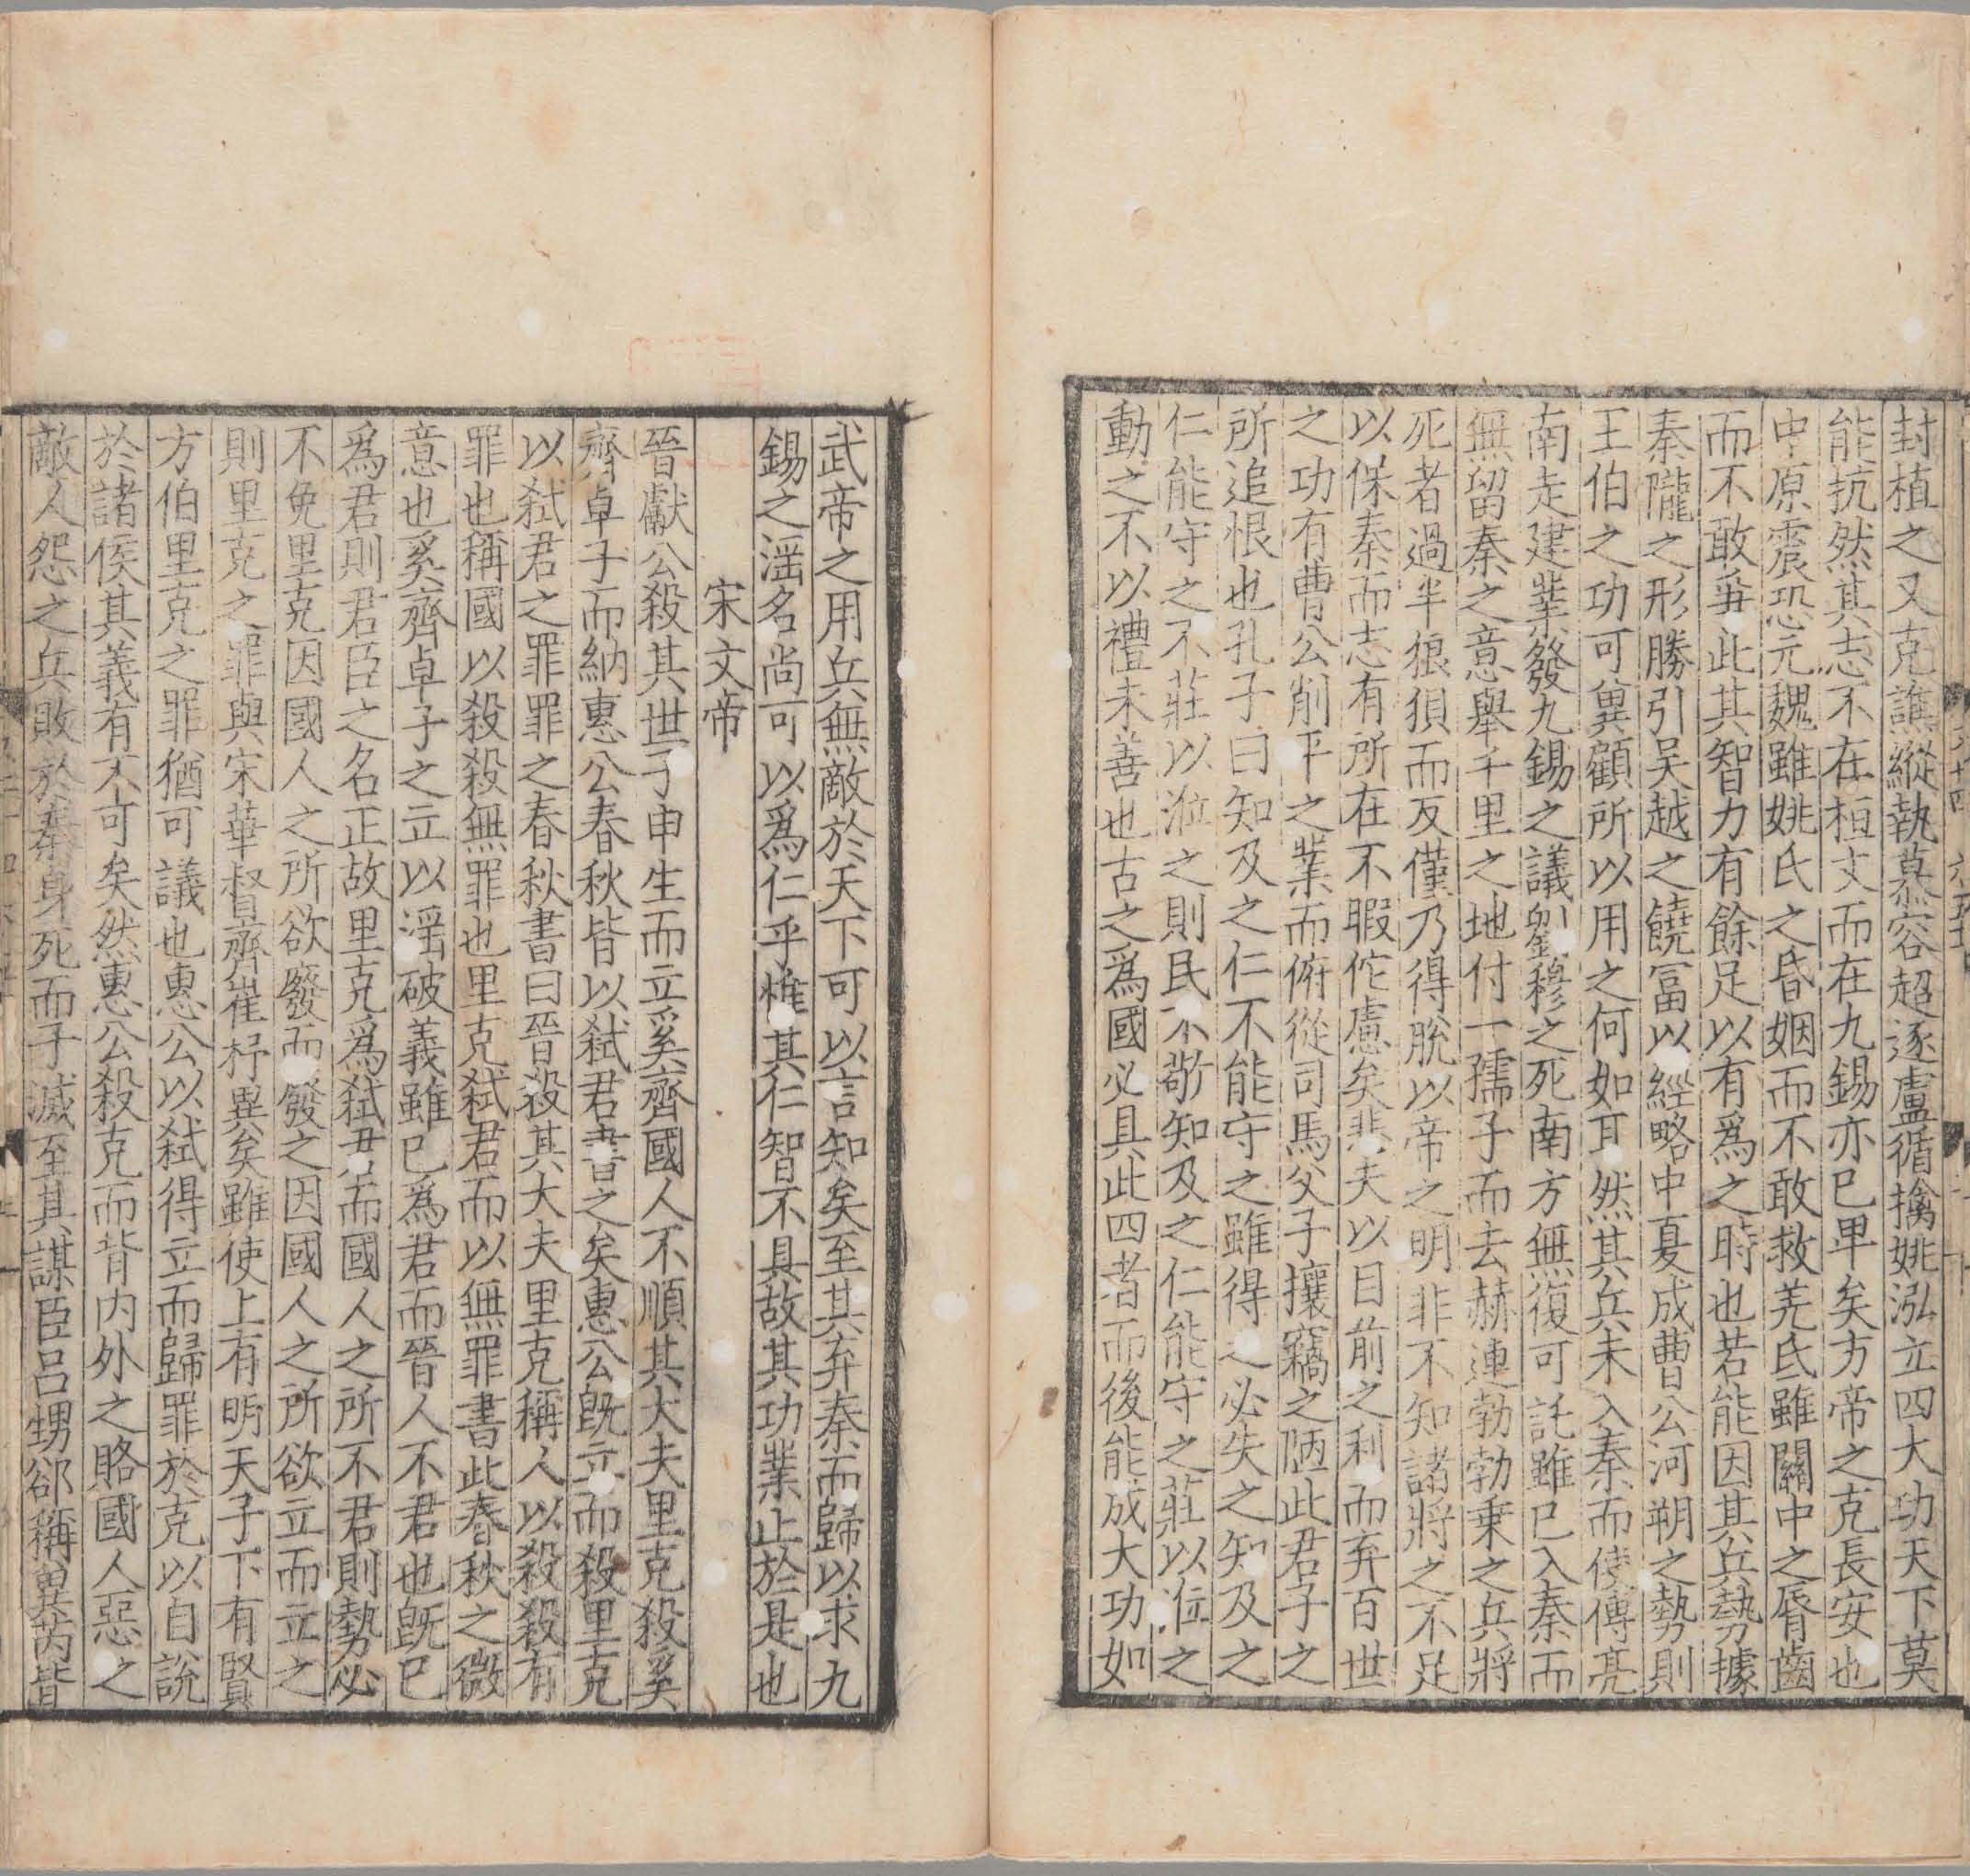 封植之又克譙縱執慕容超逐盧循擒姚泓立四大功天下莫
能抗然其志不在桓文而在九錫亦已卑矣方帝之克長安也
中原震恐元魏雖姚氏之昏姻而不敢救羌氐雖關中之脣齒
而不敢爭此其智力有餘足以有爲之時也若能因其兵勢據
秦隴之形勝引吴越之饒冨以經略中夏成曹公河朔之勢則
王伯之功可兾顧所以用之何如耳然其兵未入秦而使傅亮
南走建業發九錫之議劉穆之死南方無復可託雖已入秦而
無留秦之意舉千里之地付一孺子而去赫連勃勃乗之兵將
死者過半狼狽而反僅乃得脫以帝之明非不知諸將之不足
以保秦而志有所在不暇佗慮矣悲夫以目前之利而弃百世
之功有曹公削平之業而俯從司馬父子攘竊之陋此君子之
所追恨也孔子曰知及之仁不能守之雖得之必失之知及之
仁能守之不莊以涖之則民不敬知及之仁能守之莊以涖之
動之不以禮未善也古之爲國必具此四者而後能成大功如
武帝之用兵無敵於天下可以言知矣至其弃秦而歸以求九
錫之滛名尚可以爲仁乎惟其仁智不具故其功業止於是也
宋文帝
晉獻公殺其世子申生而立奚齊國人不順其大夫里克殺奚
齊卓子而納惠公春秋皆以弑君書之矣惠公旣立而殺里克
以弑君之罪罪之春秋書曰晉殺其大夫里克稱人以殺殺有
罪也稱國以殺殺無罪也里克弑君而以無罪書此春秋之微
意也奚齊卓子之立以滛破義雖已爲君而晉人不君也旣已
爲君則君臣之名正故里克爲弑君而國人之所不君則勢必
不免里克因國人之所欲廢而廢之因國人之所欲立而立之
則里克之罪與宋華督齊崔杼異矣雖使上有明天子下有賢
方伯里克之罪猶可議也惠公以弑得立而歸罪於克以自說
於諸侯其義有不可矣然惠公殺克而背内外之賂國人惡之
敵人怨之兵敗於秦身死而子滅至其謀臣呂甥郤稱兾芮皆